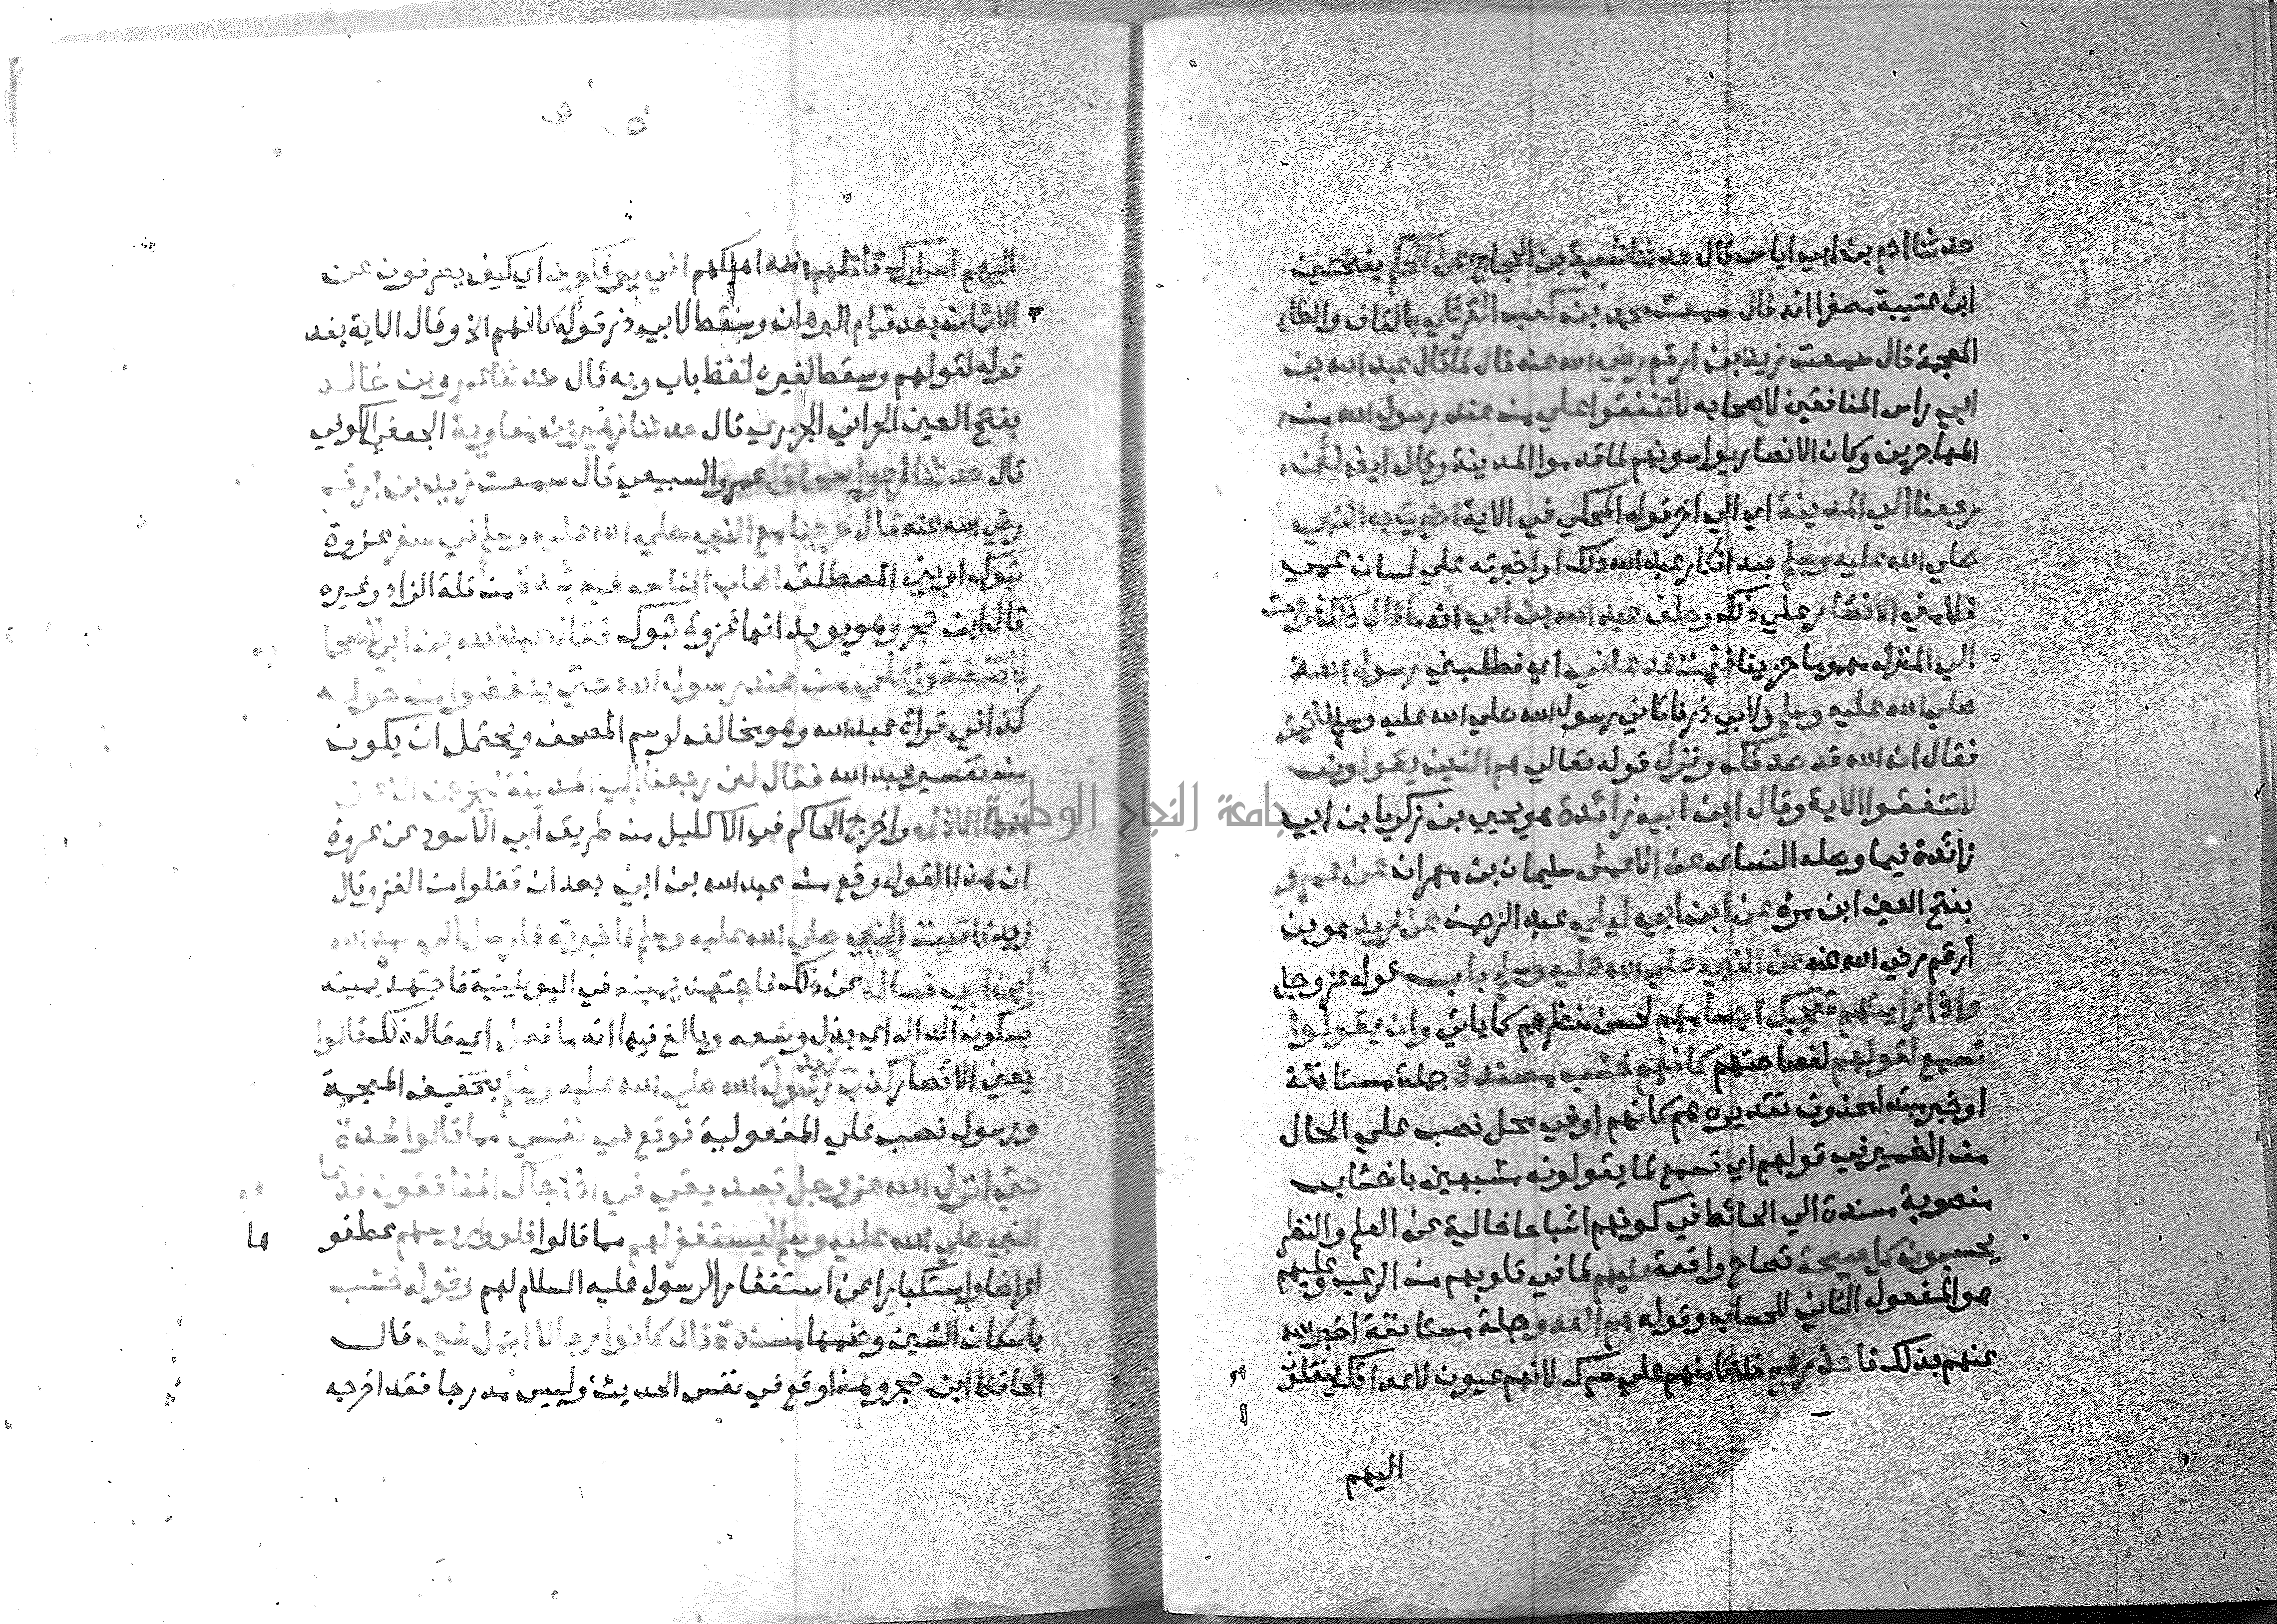 حدثنا ادم بن ابي اياس قال حدثنا شعبة بن الحجاج عن الحكم بفتحتين
ابن عتيبة مصغرا انه قال سمعت محمد بن كعب القرظي بالقاف والظاء
المعجمة قال سمعت زيد بن ارقم رضي الله عنه قال لما قال عبد الله بن
ابي راس المنافقين لاصحابه لا تنفقوا علي من عند رسول الله من
المهاجرين وكان الانصار يواسونهم لما قدموا المدينة وقال ايضا لئن
رجعنا الي المدينة اي الي اخر قوله المحكي في الاية اخبرت به النبي
صلي الله عليه وسلم بعد انكار عبد الله ذلك او اخبرته علي لسان عمي
فلامني الانصار علي ذلك وحلف عبد الله بن ابي انه ما قال ذلك فرجعت
الي المنزل مهموما حزينا فنمت فدعاني اي فطلبني رسول الله
صلي الله عليه وسلم ولابي ذر فاتاني رسول الله صلي الله عليه وسلم فاتيته
فقال ان الله قد صدقك ونزل قوله تعالي هم الذين يقولون
لا تنفقوا الاية وقال ابن ابي زائدة هو يحيي بن زكريا بن ابي
زائدة فيما وصله النساءي عن الاعمش سليمان بن مهران عن عمرو
بفتح العين ابن مرة عن ابن ابي ليلي عبد الرحمن عن زيد هو بن
أرقم رضي الله عنه عن النبي صلي الله عليه وسلم باب قوله عز وجل
واذا رايتهم تعجبك اجسامهم لحسن منظرهم كما ياتي وان يقولوا
تسمع لقولهم لفصاحتهم كانهم خشب مسندة جملة مستانفة
او خبر مبتدا محذوف تقديره هم كانهم او في محل نصب علي الحال
من الضمير في قولهم اي تسمع لما يقولونه مشبهين باخشاب
منصوبة مسندة الي الحائط في كونهم اشباحا خالية عن العلم والنظر
يحسبون كل صيحة تصاح واقعة عليهم لما في قلوبهم من الرعب وعليهم
هو المفعول الثاني للحسبان وقوله هم العدو جملة مستانفة اخبر الله
عنهم بذلك فاحذرهم فلا تامنهم علي سرك لانهم عيون لاعدائك ينقلون
اليهم
اليهم اسرارك قاتلهم الله اهلكهم اني يوفكون اي كيف يصرفون عن
الايمان بعد قيام البرهان وسقط لابي ذر قوله كانهم الخ وقال الاية بعد
قوله لقولهم وسقط لغيره لفظ باب وبه قال حدثنا عمرو بن خالد
بفتح العين الحراني الجزري قال حدثنا زهير بن معاوية الجعفي الكوفي
قال حدثنا ابو اسحاق عمرو السبيعي قال سمعت زيد بن ارقم
رضي الله عنه قال خرجنا مع النبي صلي الله عليه وسلم في سفر غزوة
تبوك او بني المصطلق اصاب الناس فيه شدة من قلة الزاد وغيره
قال ابن حجر وهو يويد انها غزوة تبوك فقال عبد الله بن ابي لاصحابه
لا تنفقوا علي من عند رسول الله حتي ينفضوا من حوله
كذا في قراة عبد الله وهو مخالف لرسم المصحف ويحتمل ان يكون
من تفسير عبد الله فقال لئن رجعنا الي المدينة ليخرجن الاعز
منها الاذل واخرج الحاكم في الاكليل من طريق ابي الاسود عن عروة
ان هذا القول وقع من عبد الله بن ابي بعد ان قفلوا من الغزو قال
زيد فاتيت النبي صلي الله عليه وسلم فاخبرته فارسل الي عبد الله
ابن ابي فساله عن ذلك فاجتهد يمينه في اليونينية فاجتهد يمينه
بسكون الدال اي بذل وسعه وبالغ فيها انه ما فعل اي قال ذلك قالوا
يعني الانصار كذب زيد رسول الله صلي الله عليه وسلم بتخفيف المعجمة
ورسول نصب علي المفعولية فوقع في نفسي مما قالوا شدة
حتي انزل الله عز وجل تصديقي في اذا جاك المنافقون فدعاهم
النبي صلي الله عليه وسلم ليستغفر لهم مما قالوا فلووا روسهم عطفوها
اعراضا واستكبارا عن استغفار الرسول عليه السلام لهم وقوله خشب
باسكان الشين وضمها مسندة قال كانوا رجالا اجمل شيء قال
الحافظ ابن حجر وهذا وقع في نفس الحديث وليس مدرجا فقد اخرجه
جامعة النجاح الوطنية